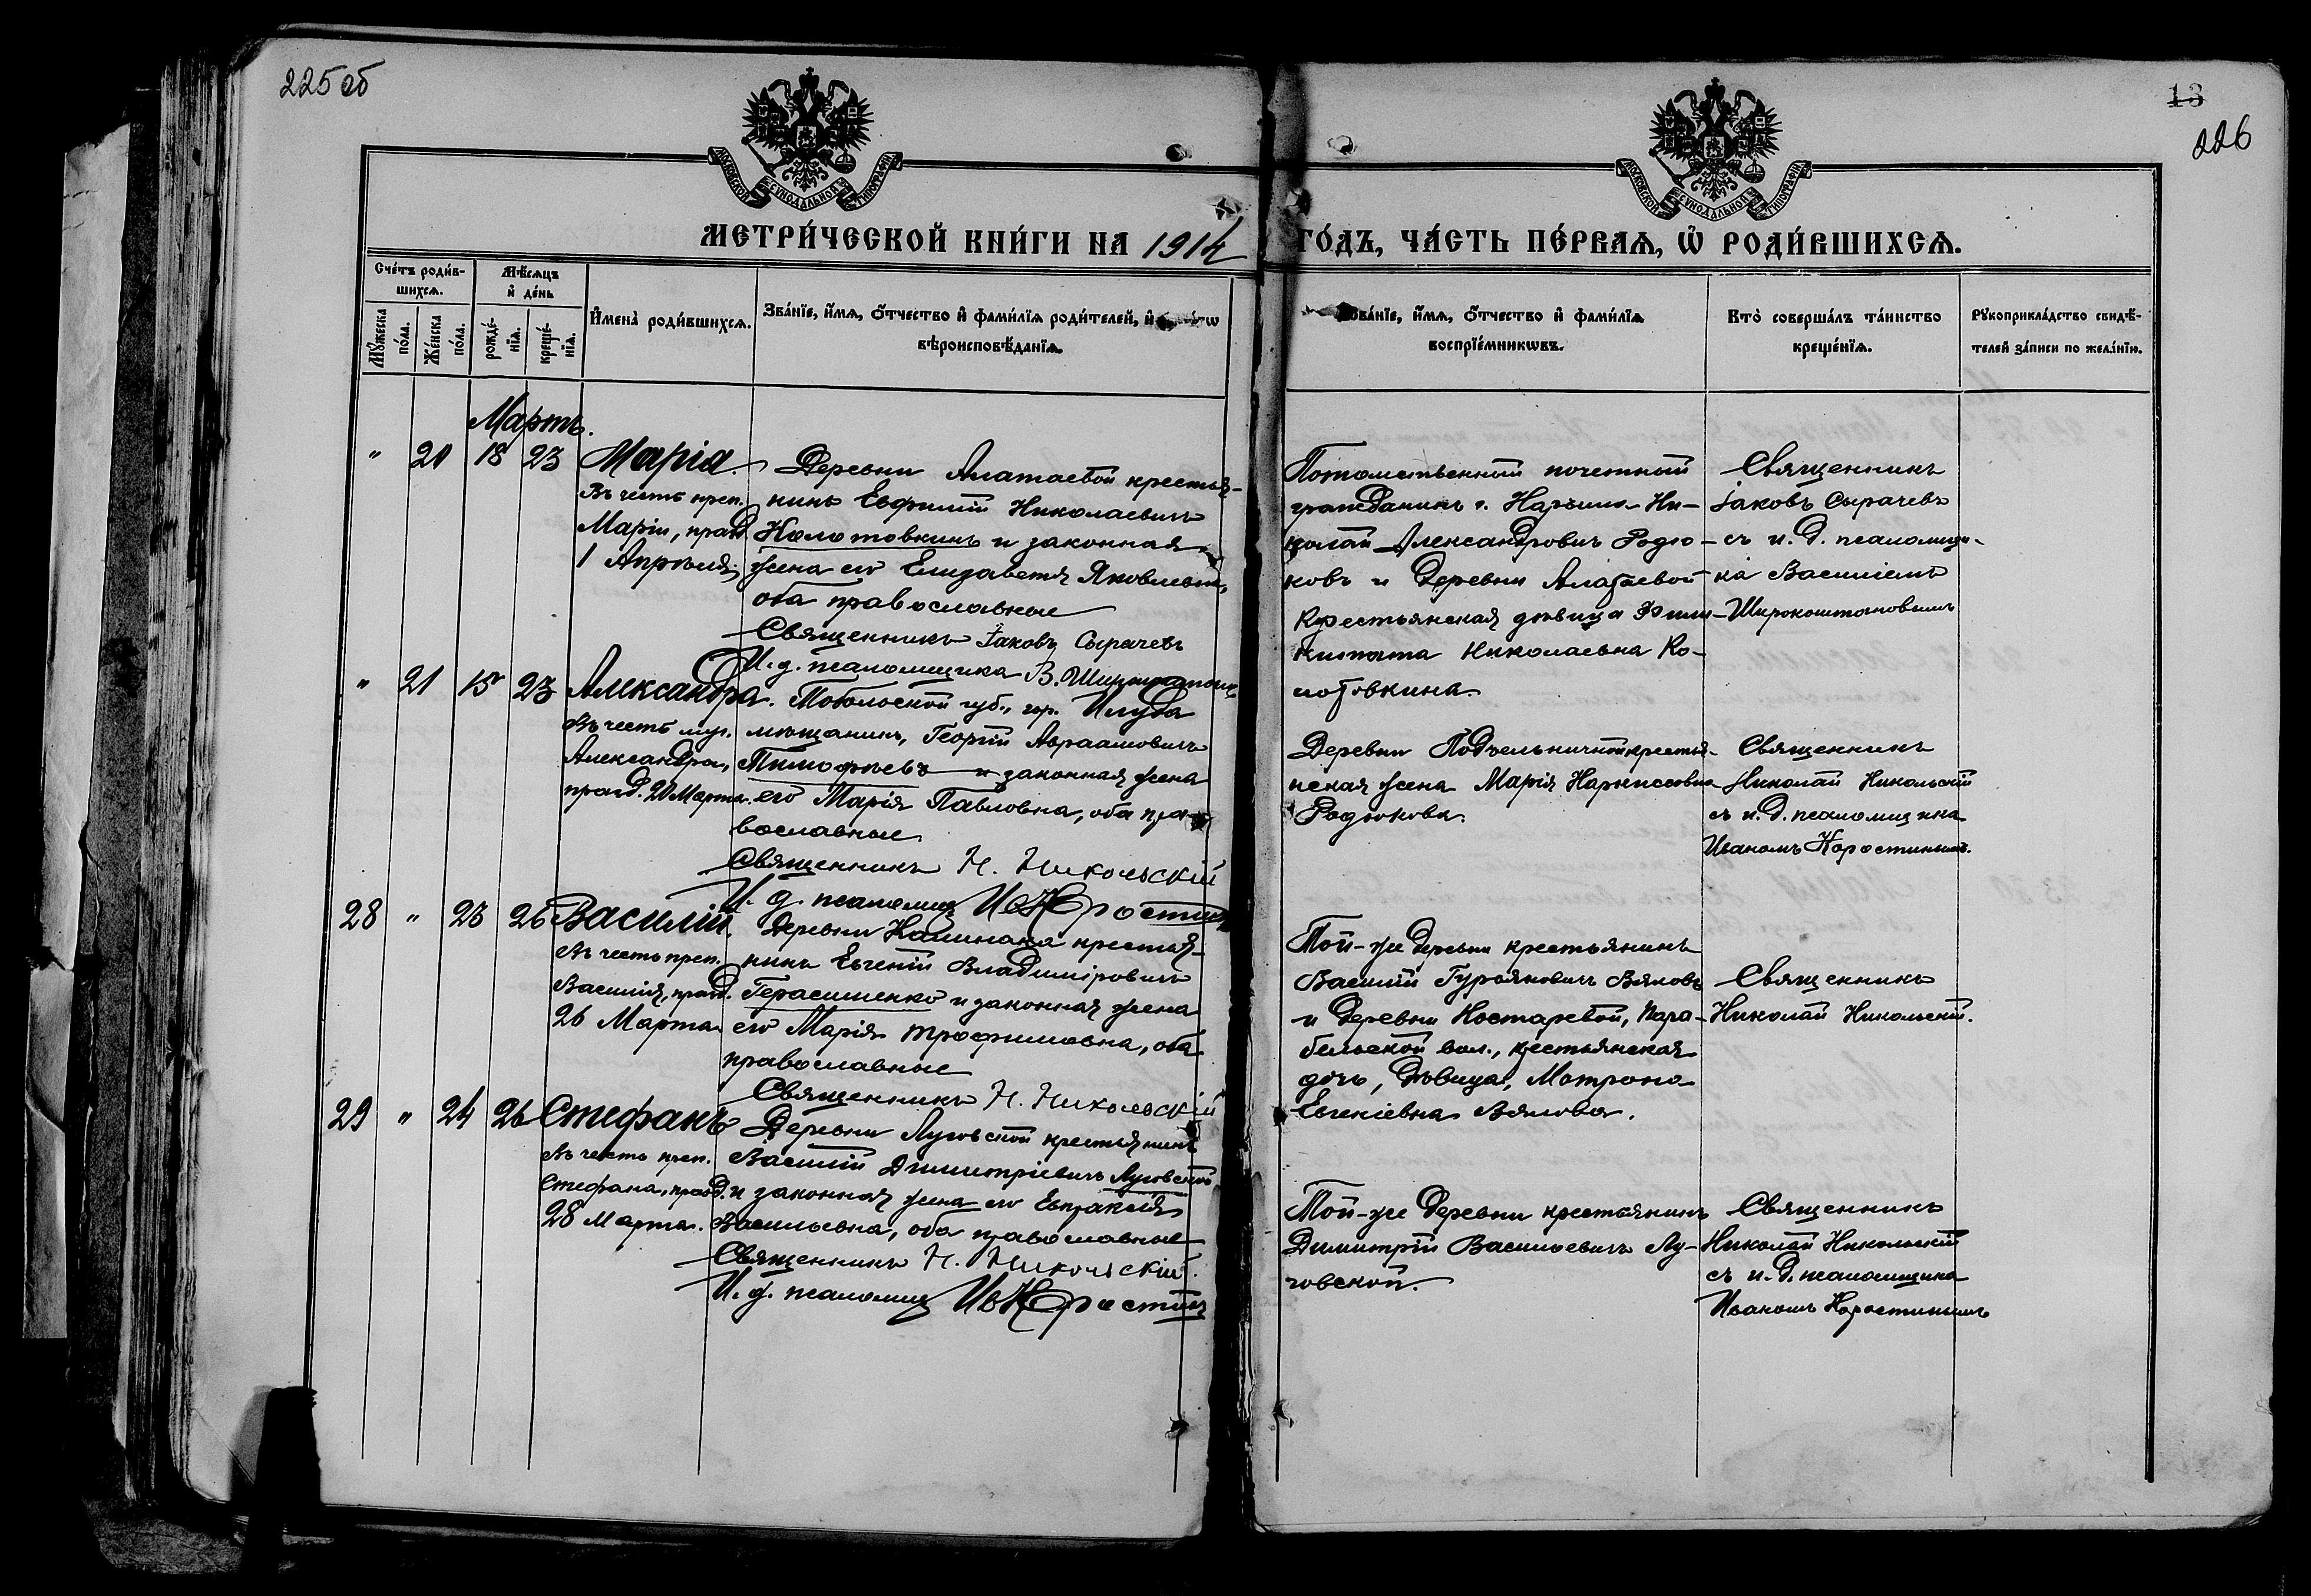 225 об
13
226
МОСКОВСКОЙ СѴНОДАЛЬНОЙ ТИПОГРАФІИ
МОСКОВСКОЙ СѴНОДАЛЬНОЙ ТИПОГРАФІИ
МЕТРИ́ЧЕСКОЙ КНИ́ГИ НА 1914
ГО́ДЪ, ЧА́СТЬ ПЕ́РВАѦ, Ѿ РОДИ́ВШИХСѦ.
Сче́тъ роди́в-
шихсѧ.
Мѣ́сяцъ
и҆ де́нь
Мꙋ́жеска
по́ла.
Же́нска
по́ла.
рожде́-
нїѧ.
креще́-
нїѧ.
И҆мена̀ роди́вшихсѧ.
Зва́нїе, и҆́мѧ, ѻ҆́тчество и҆ фами́лїѧ роди́телей, и҆
вѣроисповѣ́данїѧ.
Зва́нїе, и҆́мѧ, ѻ҆́тчество и҆ фами́лїѧ
воспрїе́мникѡвъ.
Кто̀ соверша́лъ та́инство
креще́нїѧ.
Рꙋкоприкла́дство свидѣ́-
телей за́писи по жела́нїю.
Мартъ.
" 20 18 23 Марія.
Въ честь преп.
Маріи, празд.
1 Апрѣля.
Деревни Алатаевой крестья-
нинъ Евфимій Николаевичъ
Колотовкинъ и законная
жена его Елизавета Яковлевна,
оба православные
Священникъ Іаковъ Сырачевъ
И. д. псаломщика В.
Потомственный почетный
гражданинъ г. Нарыма Ни-
колай Александрович Родю-
ковъ и деревни Алатаевой
крестьянская дѣвица Фили-
Николаевна Ко-
лотовкина.
Священникъ
Іаковъ Сырачевъ
съ и. д. псаломщи-
ка Василіемъ
Широкоштановымъ
" 21 15 23 Александра.
Въ честь муч.
Александры,
празд. 20 Марта.
Тобольской губ., гор.
мѣщанинъ, Георгій Авраамовичъ
Тимофѣевъ и законная жена
его Марія Павловна, оба пра-
вославные
Священникъ Н. Никольскій
И. д. псаломщ
Деревни крестья-
нская жена Марія Наркиссовна
Родюкова.
Священникъ
Николай Никольскій
съ и. д. псаломщика
Иваномъ Коростинымъ.
28 " 23 26 Василій.
Въ честь преп.
Василія, празд.
26 Марта
Деревни Каминака крестья-
нинъ Евгеній Владиміровичъ
Герасименко и законная жена
его Марія Трофимовна, оба
православные
Священникъ Н. Никольскій
Той-же деревни крестьянинъ
Василій Вяловъ
и деревни Костаревой, Пара-
бельской вол., крестьянская
дочь, дѣвица, Матрона
Евгеніевна Вялова.
Священникъ
Николай Никольскій.
29 " 24 26 Стефанъ
Въ честь преп.
Стефана, празд.
28 Марта.
Деревни Луговской крестьянинъ
Василій Димитріевичъ Луговской
и законная жена его Евпраксія
Васильевна, оба православные
Священникъ Н. Никольскій.
И. д. псаломщ
Той-же деревни крестьянинъ
Димитрій Васильевичъ Лу-
говской.
Священникъ
Николай Никольскій
съ и. д. псаломщика
Иваномъ Коростинымъ